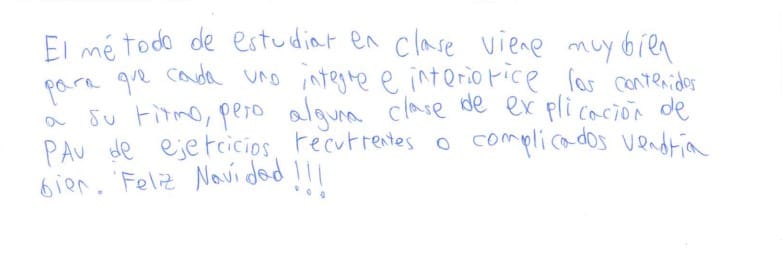 El método de estudiar en clase viene muy bien
para que cada uno integre e interiorice los contenidos
a su ritmo, pero alguna clase de explicación de
PAU de ejercicios recurrentes o complicados vendría
bien. Feliz Navidad!!!